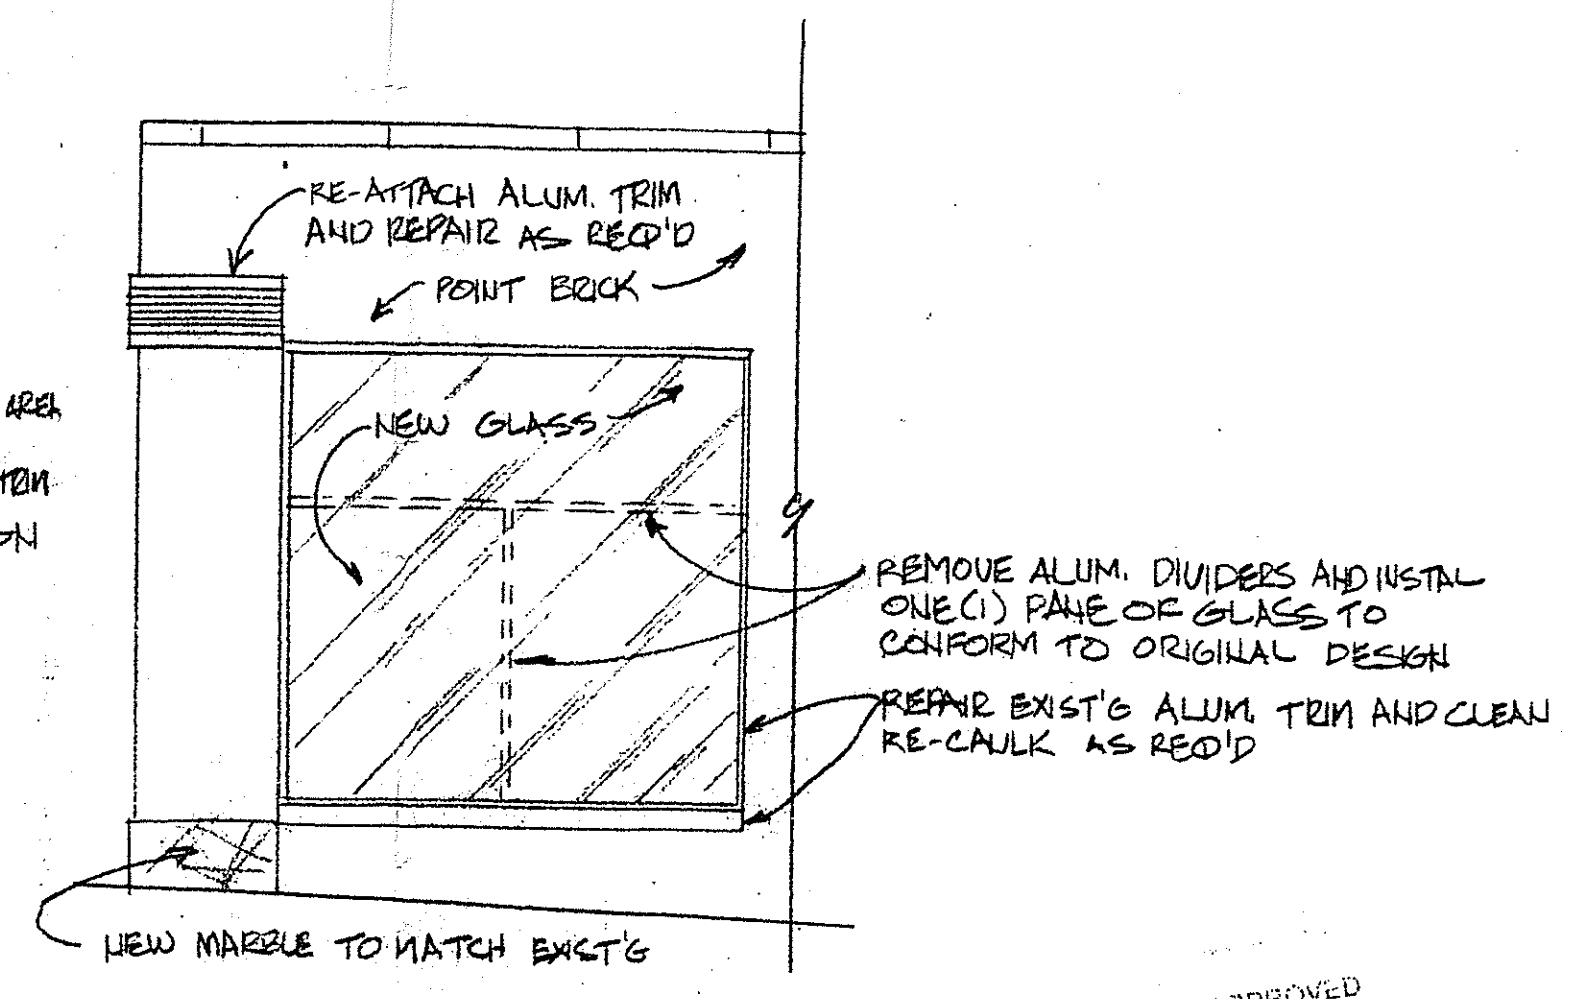 RE-ATTACH ALUM. TRIM
AND REPAIR AS REQ'D
POINT BRICK
AREA
NEW GLASS
TRIM
REMOVE ALUM. DIVIDERS AND INSTAL
ONE (1) PANE OF GLASS TO
CONFORM TO ORIGINAL DESIGN
REPAIR EXIST'G ALUM. TRIM AND CLEAN
RE-CAULK AS REQ'D
NEW MARBLE TO MATCH EXIST'G